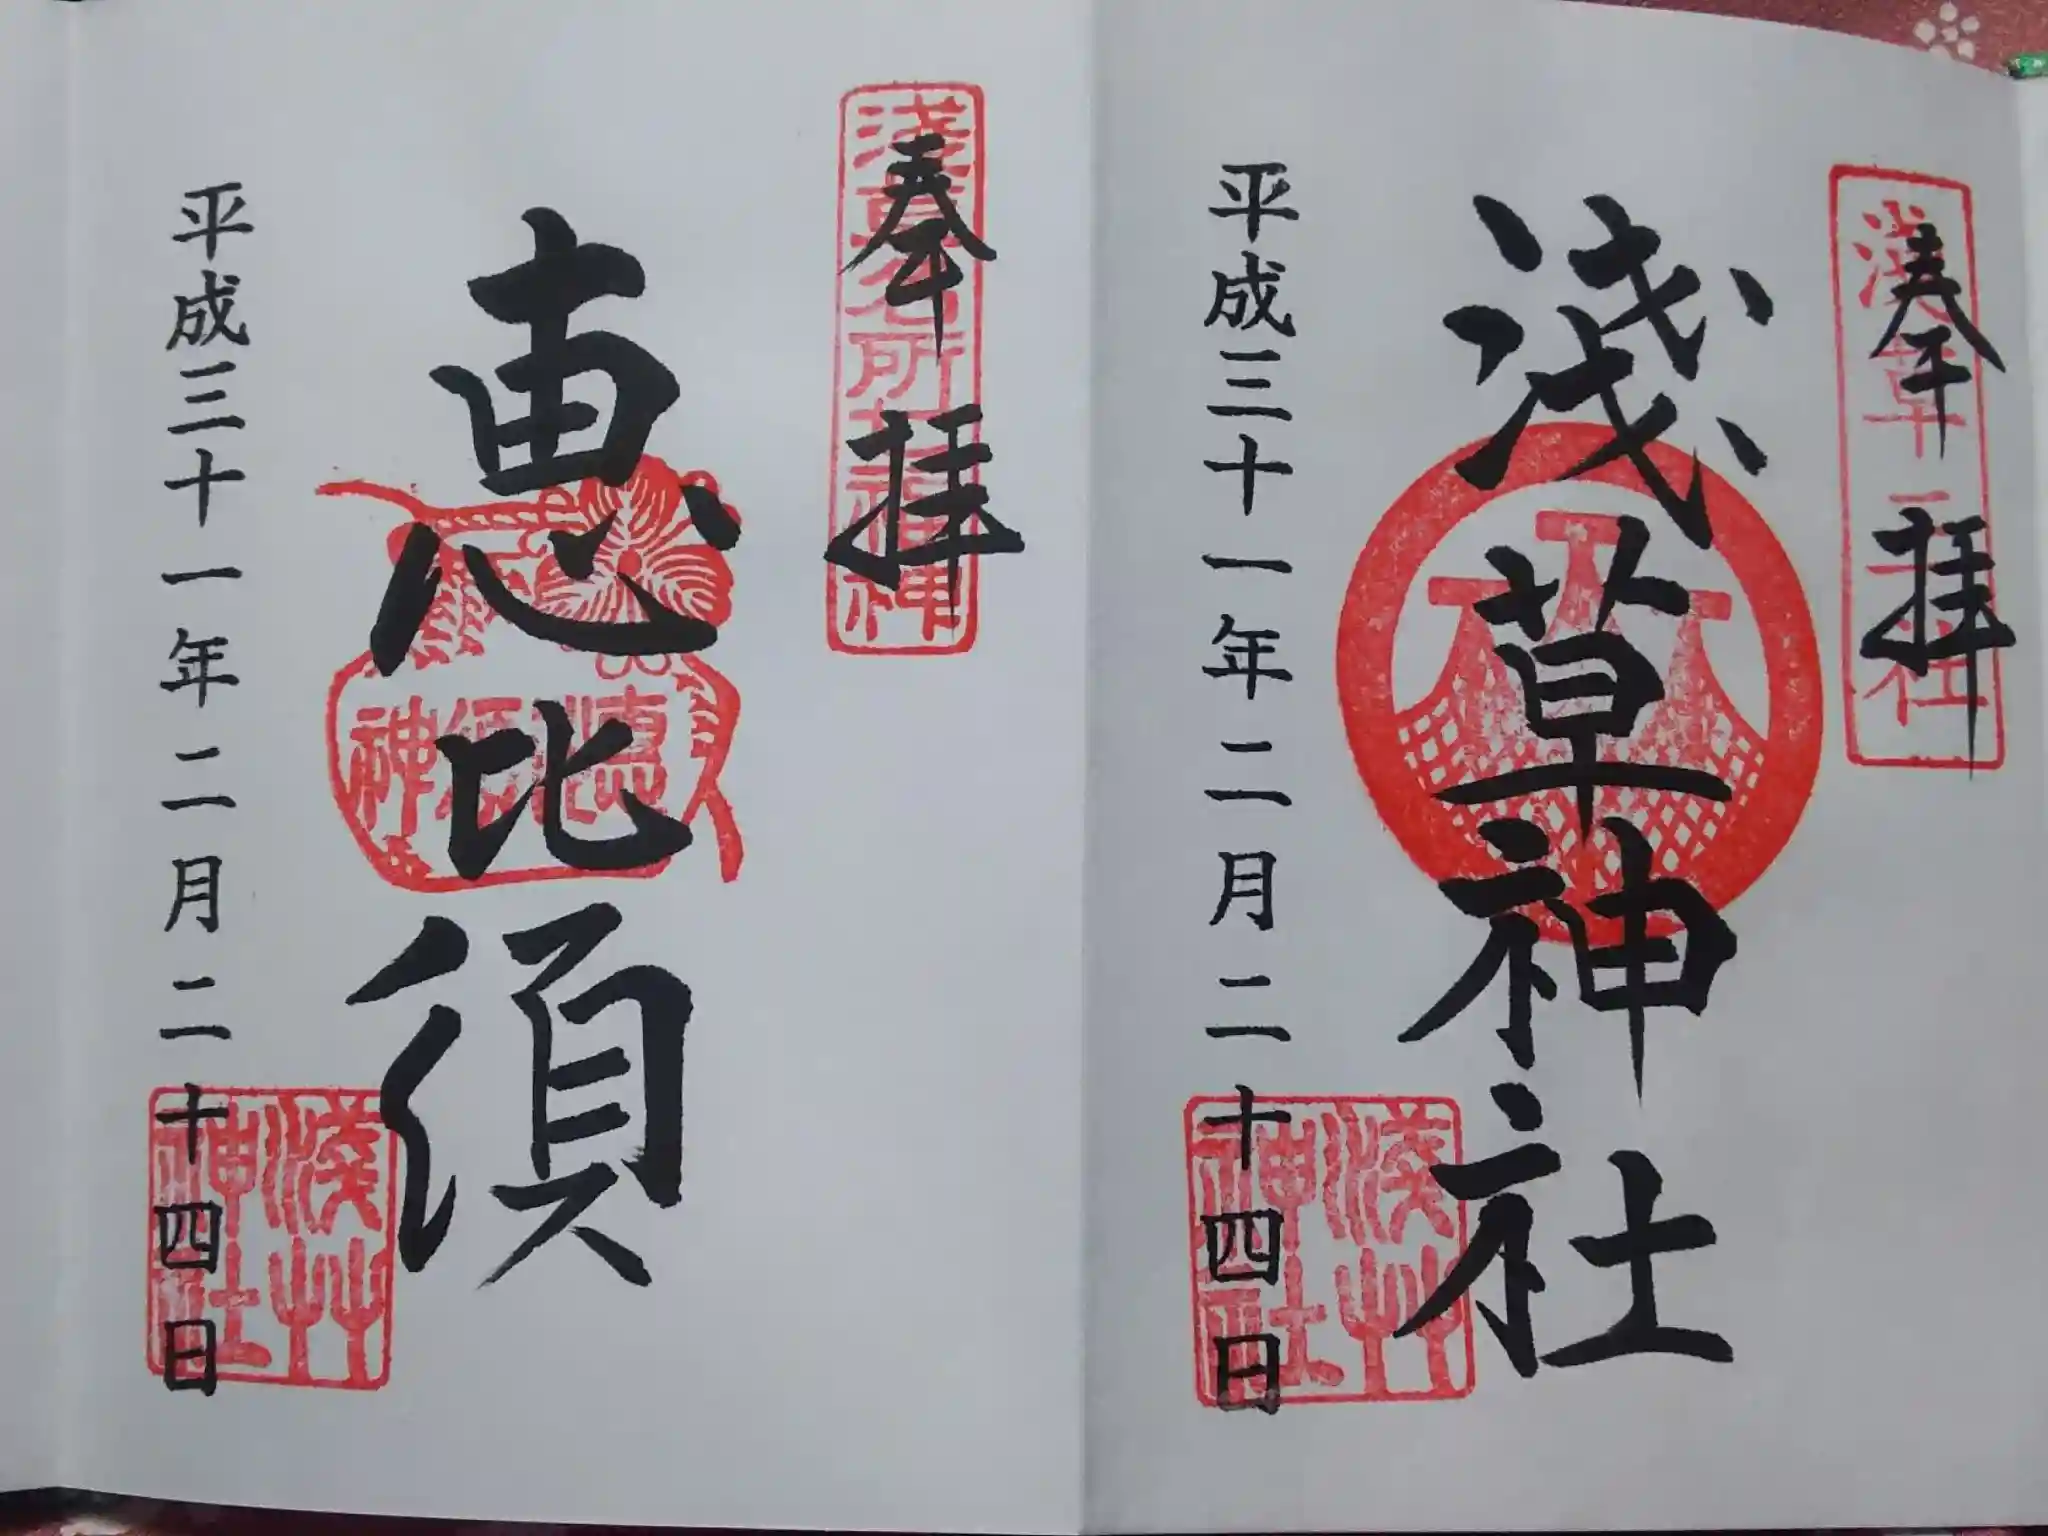 奉拝
淺草三社
淺草神社
平成三十一年二月二十四日
淺艸神社
奉拝
淺草名所福神
恵比須
惠比須神
平成三十一年二月二十四日
淺艸神社